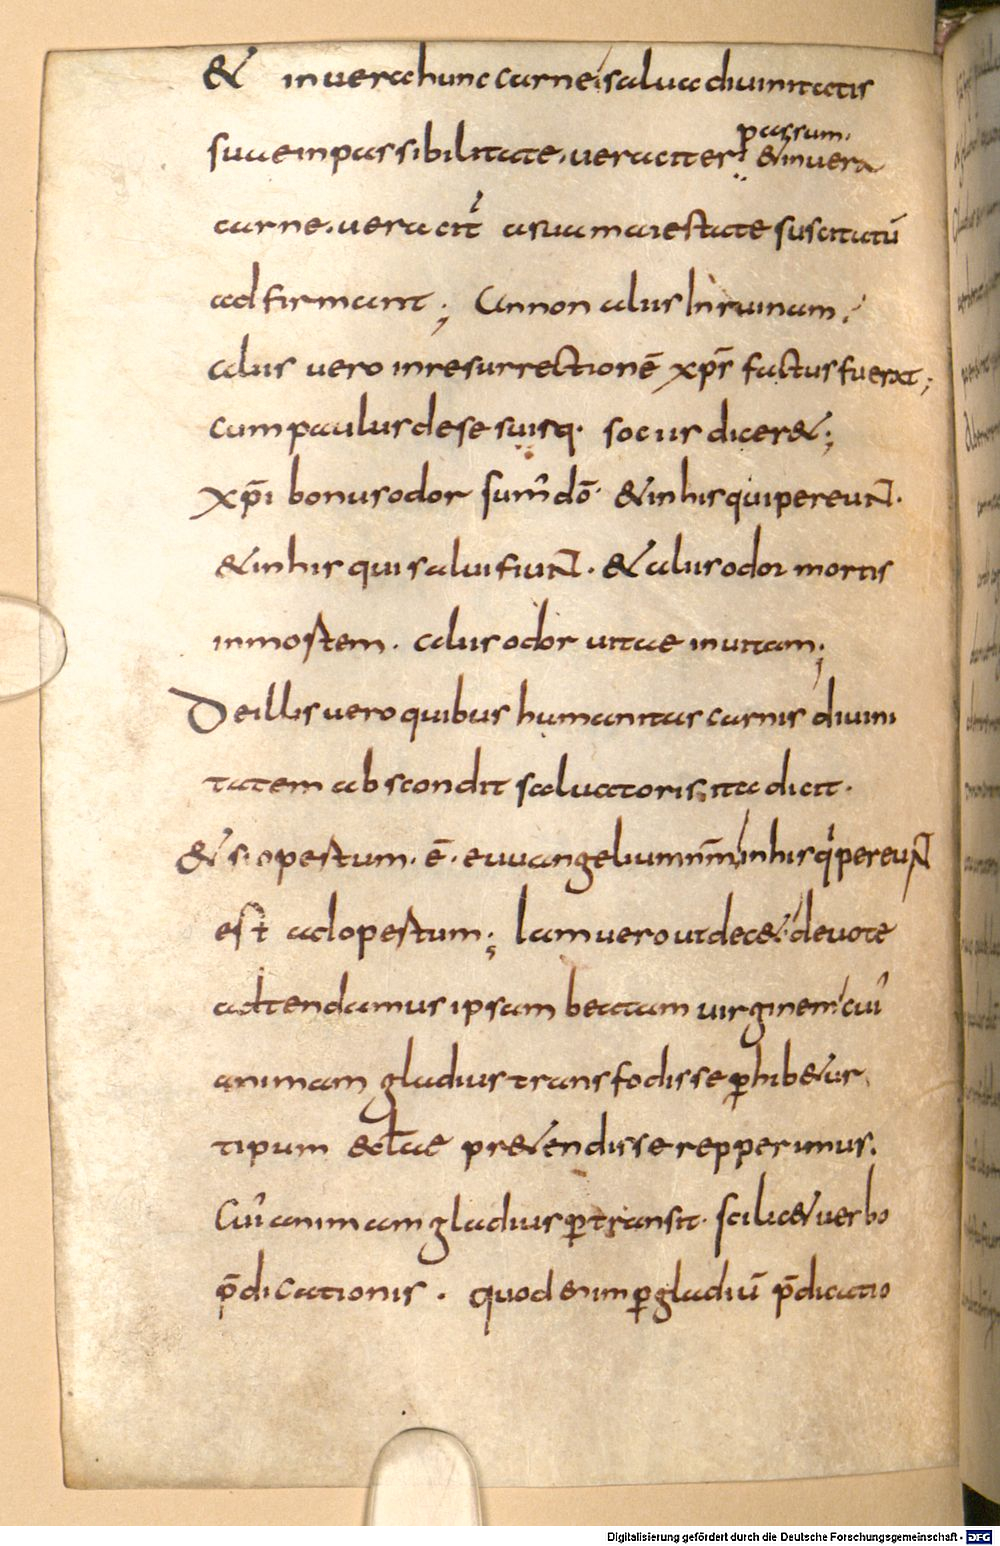 & in vera hunc carne salva divinitatis
suae inpassibilitate. veraciter passum. & in vera
carne. veracit̓ a sua maiestate suscitatū
adfirmant; An non aliis In ruinam.
aliis vero in resurrectionē xp̄s factus fuerat;
cum paulus de se suisq. sociis dicer&;
xp̄i bonus odor sum̓ dō. & in his qui pereuNt.
& in his qui salvi fiuNt. & aliis odor mortis
in mortem. aliis odor vitae in vitam;
De illis vero quibus humanitas carnis divini
tatem abscondit salvatoris, ita dicit.
& si opertum. ē. euuangelium nr̄m in his q̓ pereuNt
est adopertum; Iam vero ut dec& devote
adtendamus ipsam beatam virginem cui̓
animam gladius transfodisse ꝑhib&ur
tipum eccl̄ae pr&endisse repperimus.
Cui̓ animam gladius ꝑtransit. scilic& verbo
p̄dicationis. quod enim ꝑ gladiū p̄dicatio
Digitalisierung gefördert durch die Deutsche Forschungsgemeinschaft - DFG